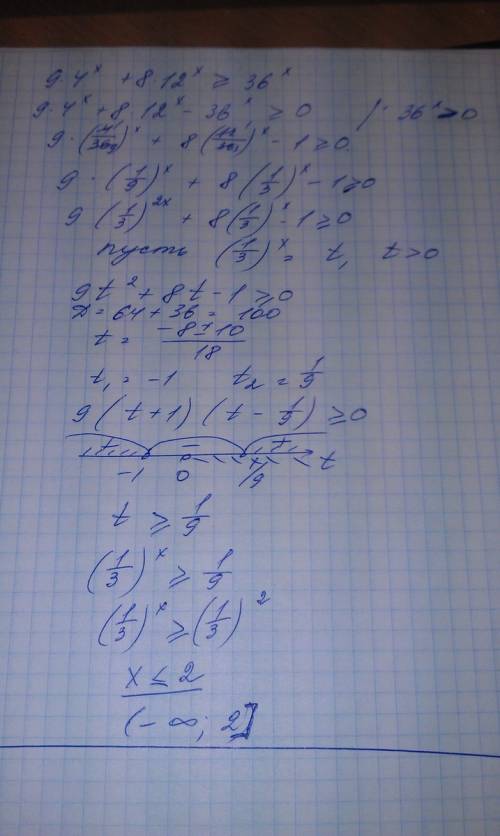 9·4^x + 8·12^x ≥ 36^x
9·4^x + 8·12^x - 36^x ≥ 0 /: 36^x > 0
9·(4/36)^x + 8(12/36)^x - 1 ≥ 0
9·(1/9)^x + 8(1/3)^x - 1 ≥ 0
9(1/3)^2x + 8(1/3)^x - 1 ≥ 0
пусть (1/3)^x = t, t > 0
9t^2 + 8t - 1 ≥ 0
D = 64 + 36 = 100
t = (-8±10)/18
t₁ = -1 t₂ = 1/9
9(t+1)(t - 1/9) ≥ 0
+ - +
-1 0 1/9 t
t ≥ 1/9
(1/3)^x ≥ 1/9
(1/3)^x ≥ (1/3)^2
x ≤ 2
(-∞; 2]